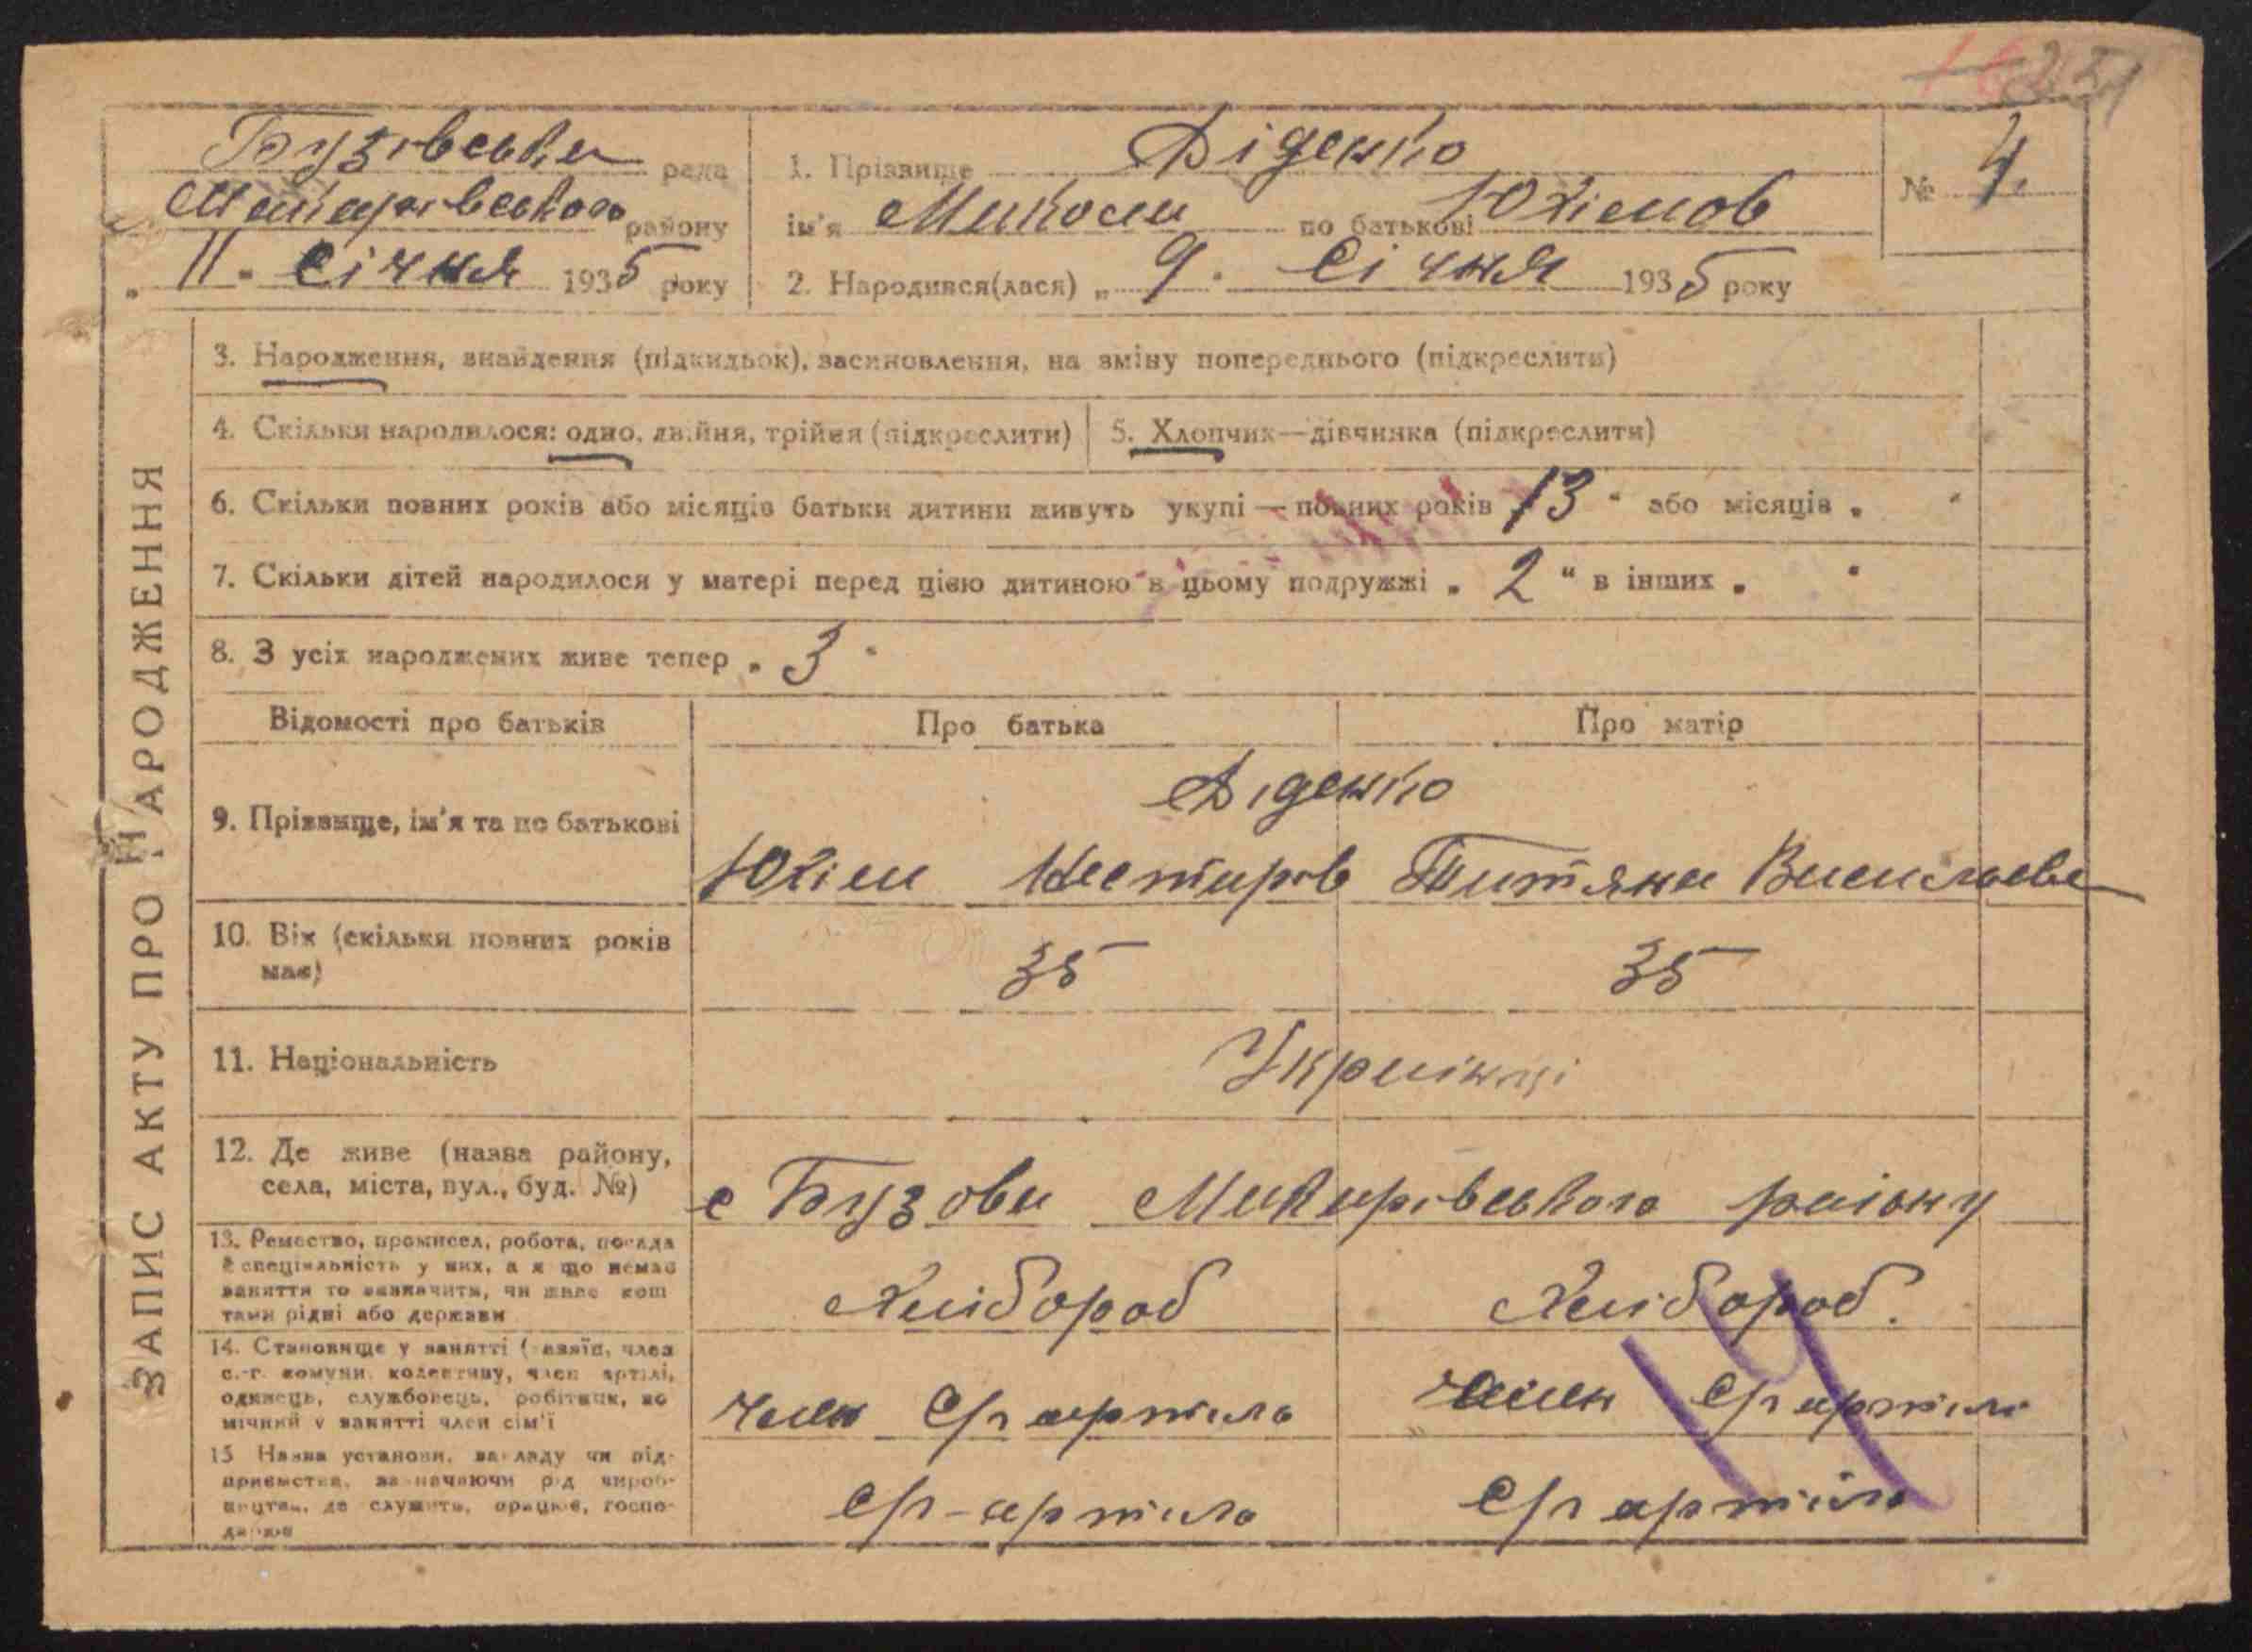 Бузівська рада
Макарівського району
„ 11 " січня 1935 року
1. Прізвище Діденко
ім'я Микола по батькові Юхімов
2. Народився(лася) „ 9 " Січня 1935 року
№ 4.
ЗАПИС АКТУ ПРО НАРОДЖЕННЯ
3. Народження, знайдення (підкидьок), засиновлення, на зміну попереднього (підкреслити)
4. Скільки народилося: одно, двійня, трійня (підкреслити)
5. Хлопчик—дівчинка (підкреслити)
6. Скільки повних років або місяців батьки дитини живуть укупі — повних років 13 " або місяців „ "
7. Скільки дітей народилося у матері перед цією дитиною в цьому подружжі „ 2 " в інших „ "
8. З усіх народжених живе тепер „ 3 "
Відомості про батьків Про батька Про матір
Діденко
9. Прізвище, ім'я та по батькові
Юхім Нестиров Титяна Василаева
10. Вік (скільки повних років
має)
35 35
11. Національність Украінці
12. Де живе (назва району,
села, міста, вул., буд. №)
с Бузова Макарівського раіону
13. Ремество, промисел, робота, посада
й спеціяльність у них, а я що немає
заняття то зазначити, чи живе кош
тами рідні або держави
Хлібороб Хлібороб.
14. Становище у занятті (хазяїн, член
с.-г. комуни колективу, член артілі,
одинець, службовець, робітник, по
мічний у занятті член сім'ї
член С/г артіло член С/г артіло
15 Назва установи, закладу чи під-
приємства, зазначаючи рід вироб-
ництва, де служить, працює, госпо-
дарює
С/г-артіло С/г артіло